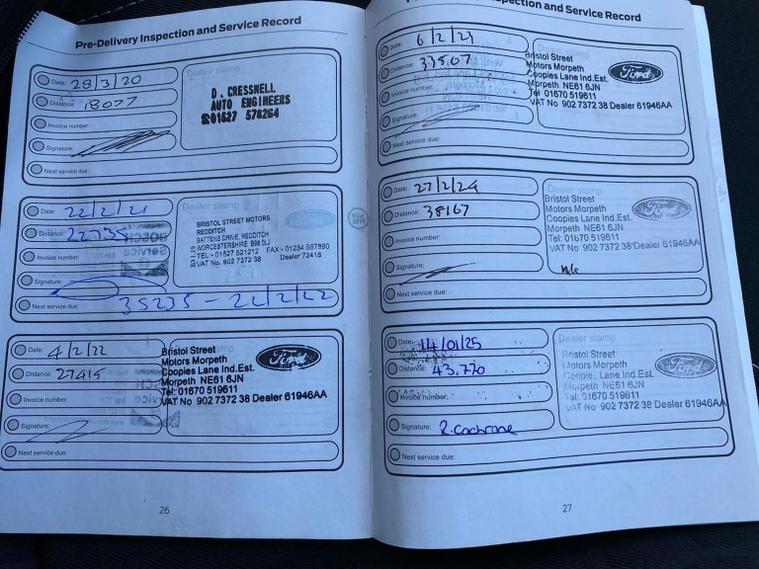 Pre-Delivery Inspection and Service Record
Date: 28/3/20
Distance: 18077
Invoice number:
Signature:
Next service due:
Dealer stamp
D. CRESSWELL
AUTO ENGINEERS
01527 578264
Date: 22/2/21
Distance: 22735
Invoice number:
Signature:
Next service due: 35235 - 22/2/22
Dealer stamp
BRISTOL STREET MOTORS
REDDITCH
BATTENS DRIVE, REDDITCH
WORCESTERSHIRE B98 0LJ
TEL - 01527 521212 FAX - 01234 567890
VAT No. 902 7372 38 Dealer 72418
Date: 4/2/22
Distance: 27415
Invoice number:
Signature:
Next service due:
Bristol Street
Motors Morpeth
Coopies Lane Ind.Est.
Morpeth NE61 6JN
Tel: 01670 519611
VAT No 902 7372 38 Dealer 61946AA
Ford
26
Inspection and Service Record
Date: 6/2/23
Distance: 33507
Invoice number:
Signature:
Next service due:
Dealer stamp
Bristol Street
Motors Morpeth
Coopies Lane Ind.Est.
Morpeth NE61 6JN
Tel 01670 519611
VAT No 902 7372 38 Dealer 61946AA
Ford
Date: 27/2/24
Distance: 38167
Invoice number:
Signature:
Next service due:
Dealer stamp
Bristol Street
Motors Morpeth
Coopies Lane Ind.Est.
Morpeth NE61 6JN
Tel: 01670 519611
VAT No 902 7372 38 Dealer 61946AA
Ford
Date: 14/01/25
Distance: 43,770
Invoice number:
Signature: R.Cochrane
Next service due:
Dealer stamp
Bristol Street
Motors Morpeth
Coopies Lane Ind.Est.
Morpeth NE61 6JN
Tel: 01670 519611
VAT No 902 7372 38 Dealer 61946AA
Ford
27